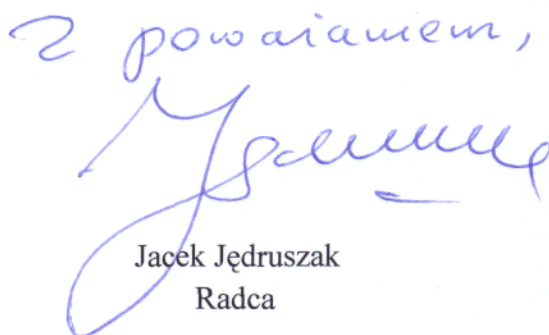 Z poważaniem,
Jacek Jędruszak
Radca